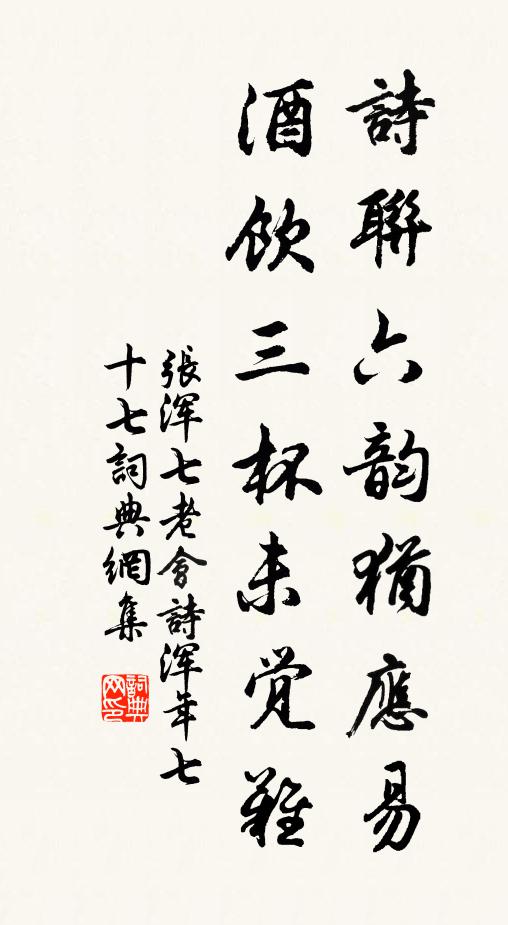 詩聯六韵猶應易
酒飲三杯未覺難
張浑七老會詩浑年七
十七詞典網集
詞典网印